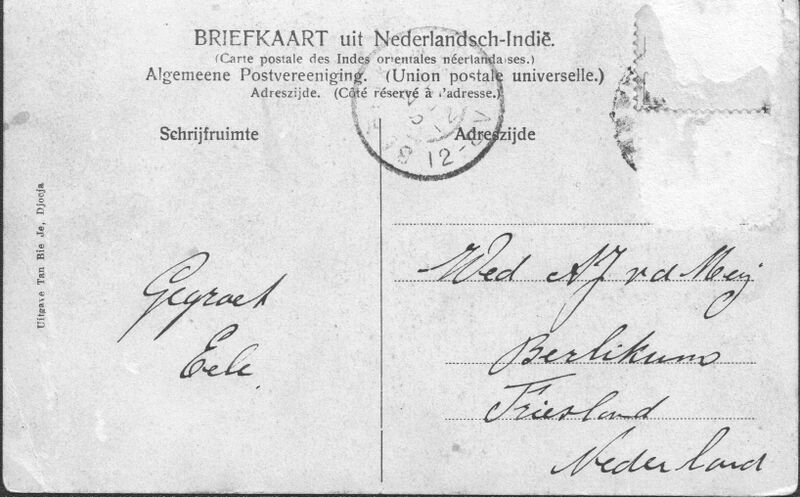 BRIEFKAART uit Nederlandsch-Indië.
(Carte postale des Indes orientales néerlandaises.)
Algemeene Postvereeniging. (Union postale universelle.)
Adreszijde. (Côté réservé à l'adresse.)
Schrijfruimte
Adreszijde
Uitgave Tan Bie Je, Djocja
Gegroet
Eele.
Wed AJ vd Meij
Berlikum
Friesland
Nederland